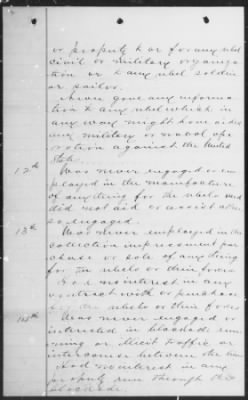 or property & or for any rebel
civil or military organiza
tion or & any rebel soldier
or sailor.
Never gave any informa
tion & any rebel which in
any way might have aided
any military or naval ope
ration against the United
State
12th Was never engaged or em
ployed in the manufacture
of anything for the rebels and
did not aid or assist others
so engaged.
13th Was never employed in the
collection impressment pur
chase or sale of anything
for the rebels or their forces
Had no interest in any
contract with or purchase
for the rebels or their forces
Was never engaged or
interested in blockade run
ning or illicit traffic or
intercourse between the
Had no interest in any
property run through the
blockade.